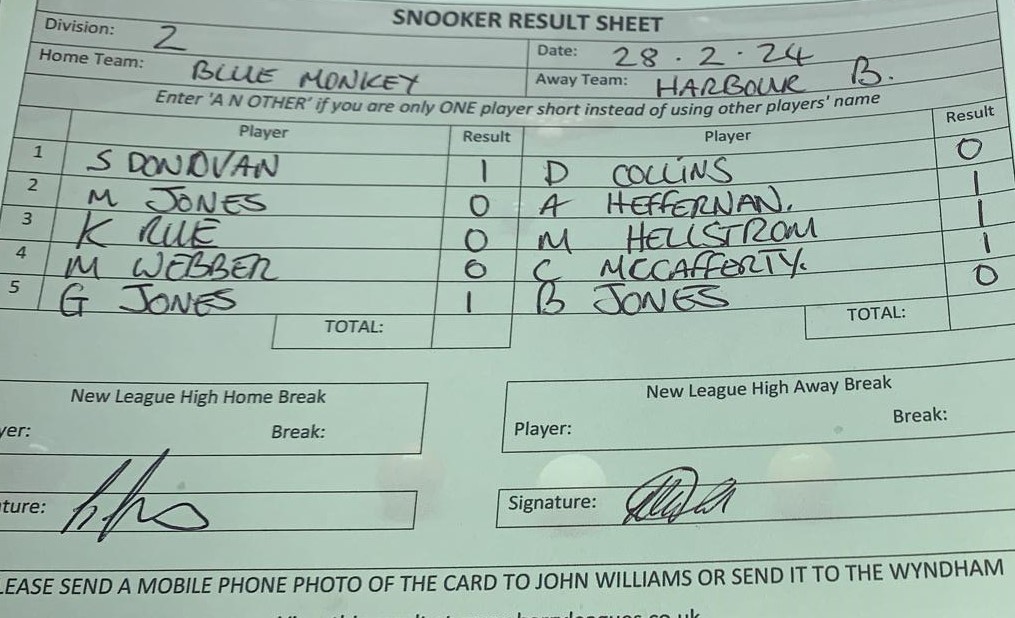 SNOOKER RESULT SHEET
Division: 2
Date: 28.2.24
Home Team: BLUE MONKEY
Away Team: HARBOUR B.
Enter 'A N OTHER' if you are only ONE player short instead of using other players' name
Player Result Player Result
1 S DONOVAN 1 D COLLINS 0
2 M JONES 0 A HEFFERNAN. 1
3 K RUE 0 M HELLSTROM 1
4 M WEBBER 0 C MCCAFFERTY. 1
5 G JONES 1 B JONES 0
TOTAL: TOTAL:
New League High Home Break New League High Away Break
yer: Break: Player: Break:
ture: Signature:
LEASE SEND A MOBILE PHONE PHOTO OF THE CARD TO JOHN WILLIAMS OR SEND IT TO THE WYNDHAM